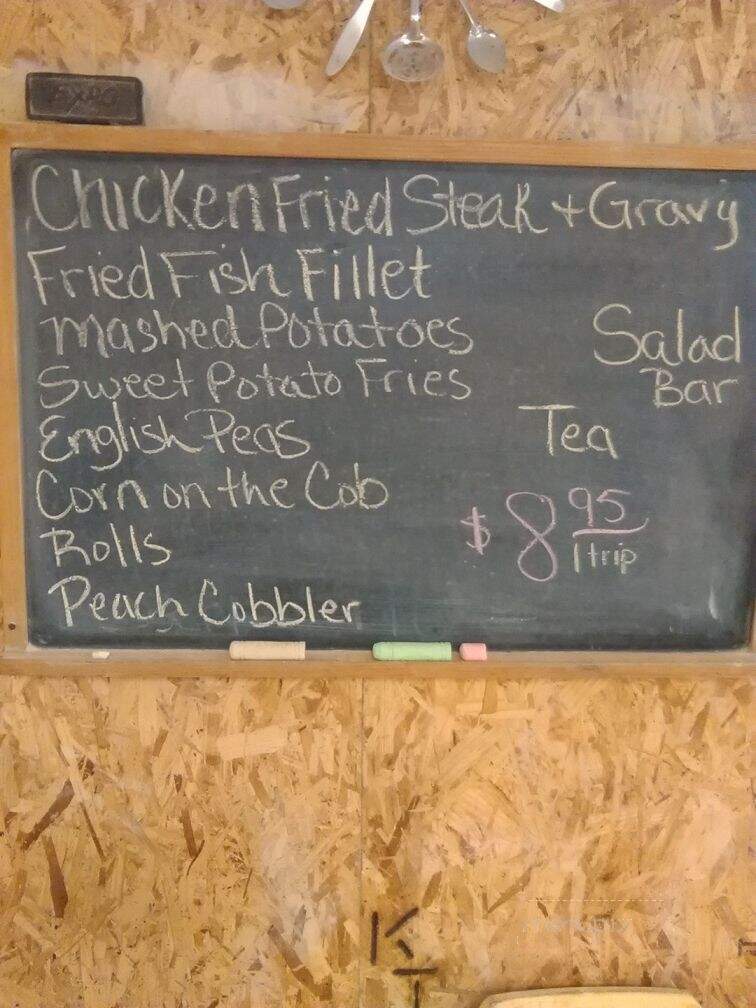 EXPO
Chicken Fried Steak + Gravy
Fried Fish Fillet
Mashed Potatoes
Sweet Potato Fries
English Peas
Corn on the Cob
Rolls
Peach Cobbler
Salad
Bar
Tea
$8 95
1 trip